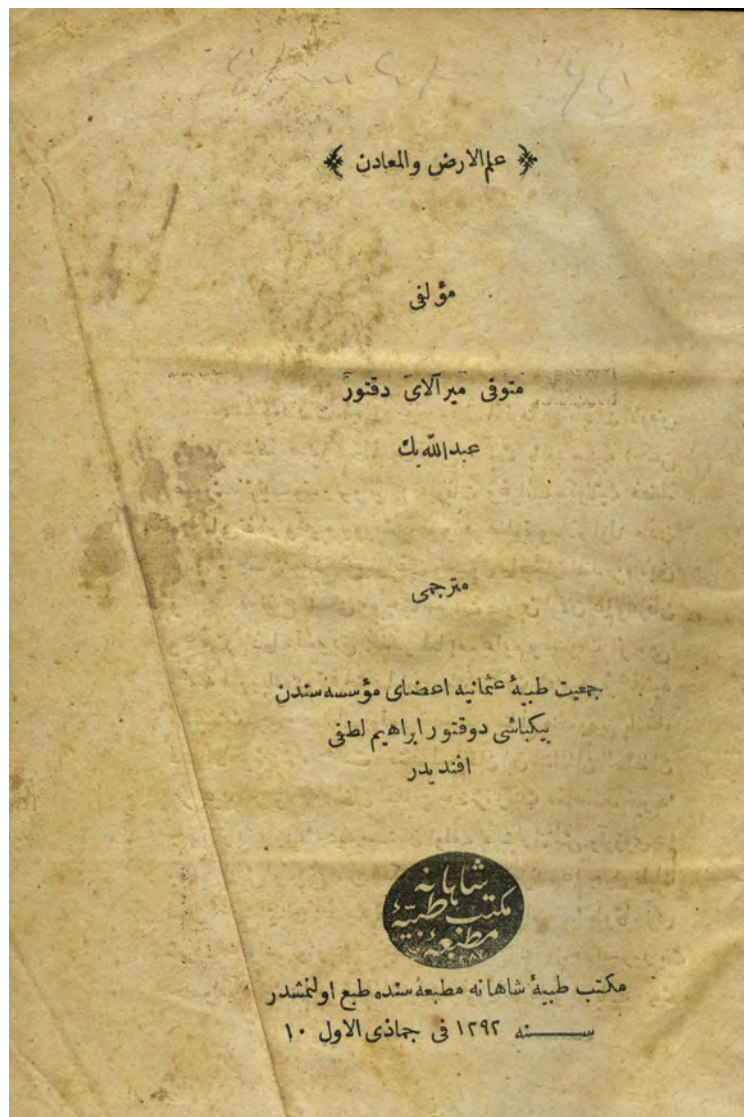 علم الارض والمعادن
مؤلفی
متوفی میرآلای دقتور
عبدالله بك
مترجمی
جمعیت طبیهٔ عثمانیه اعضای مؤسسه سندن
بیكباشی دوقتور ابراهیم لطفی
افندیدر
شاهانه
مكتب طبیهٔ
مطبعهٔ
مكتب طبیهٔ شاهانه مطبعه سنده طبع اولنمشدر
سنه ١٢٩٢ فی جماذی الاول ١٠